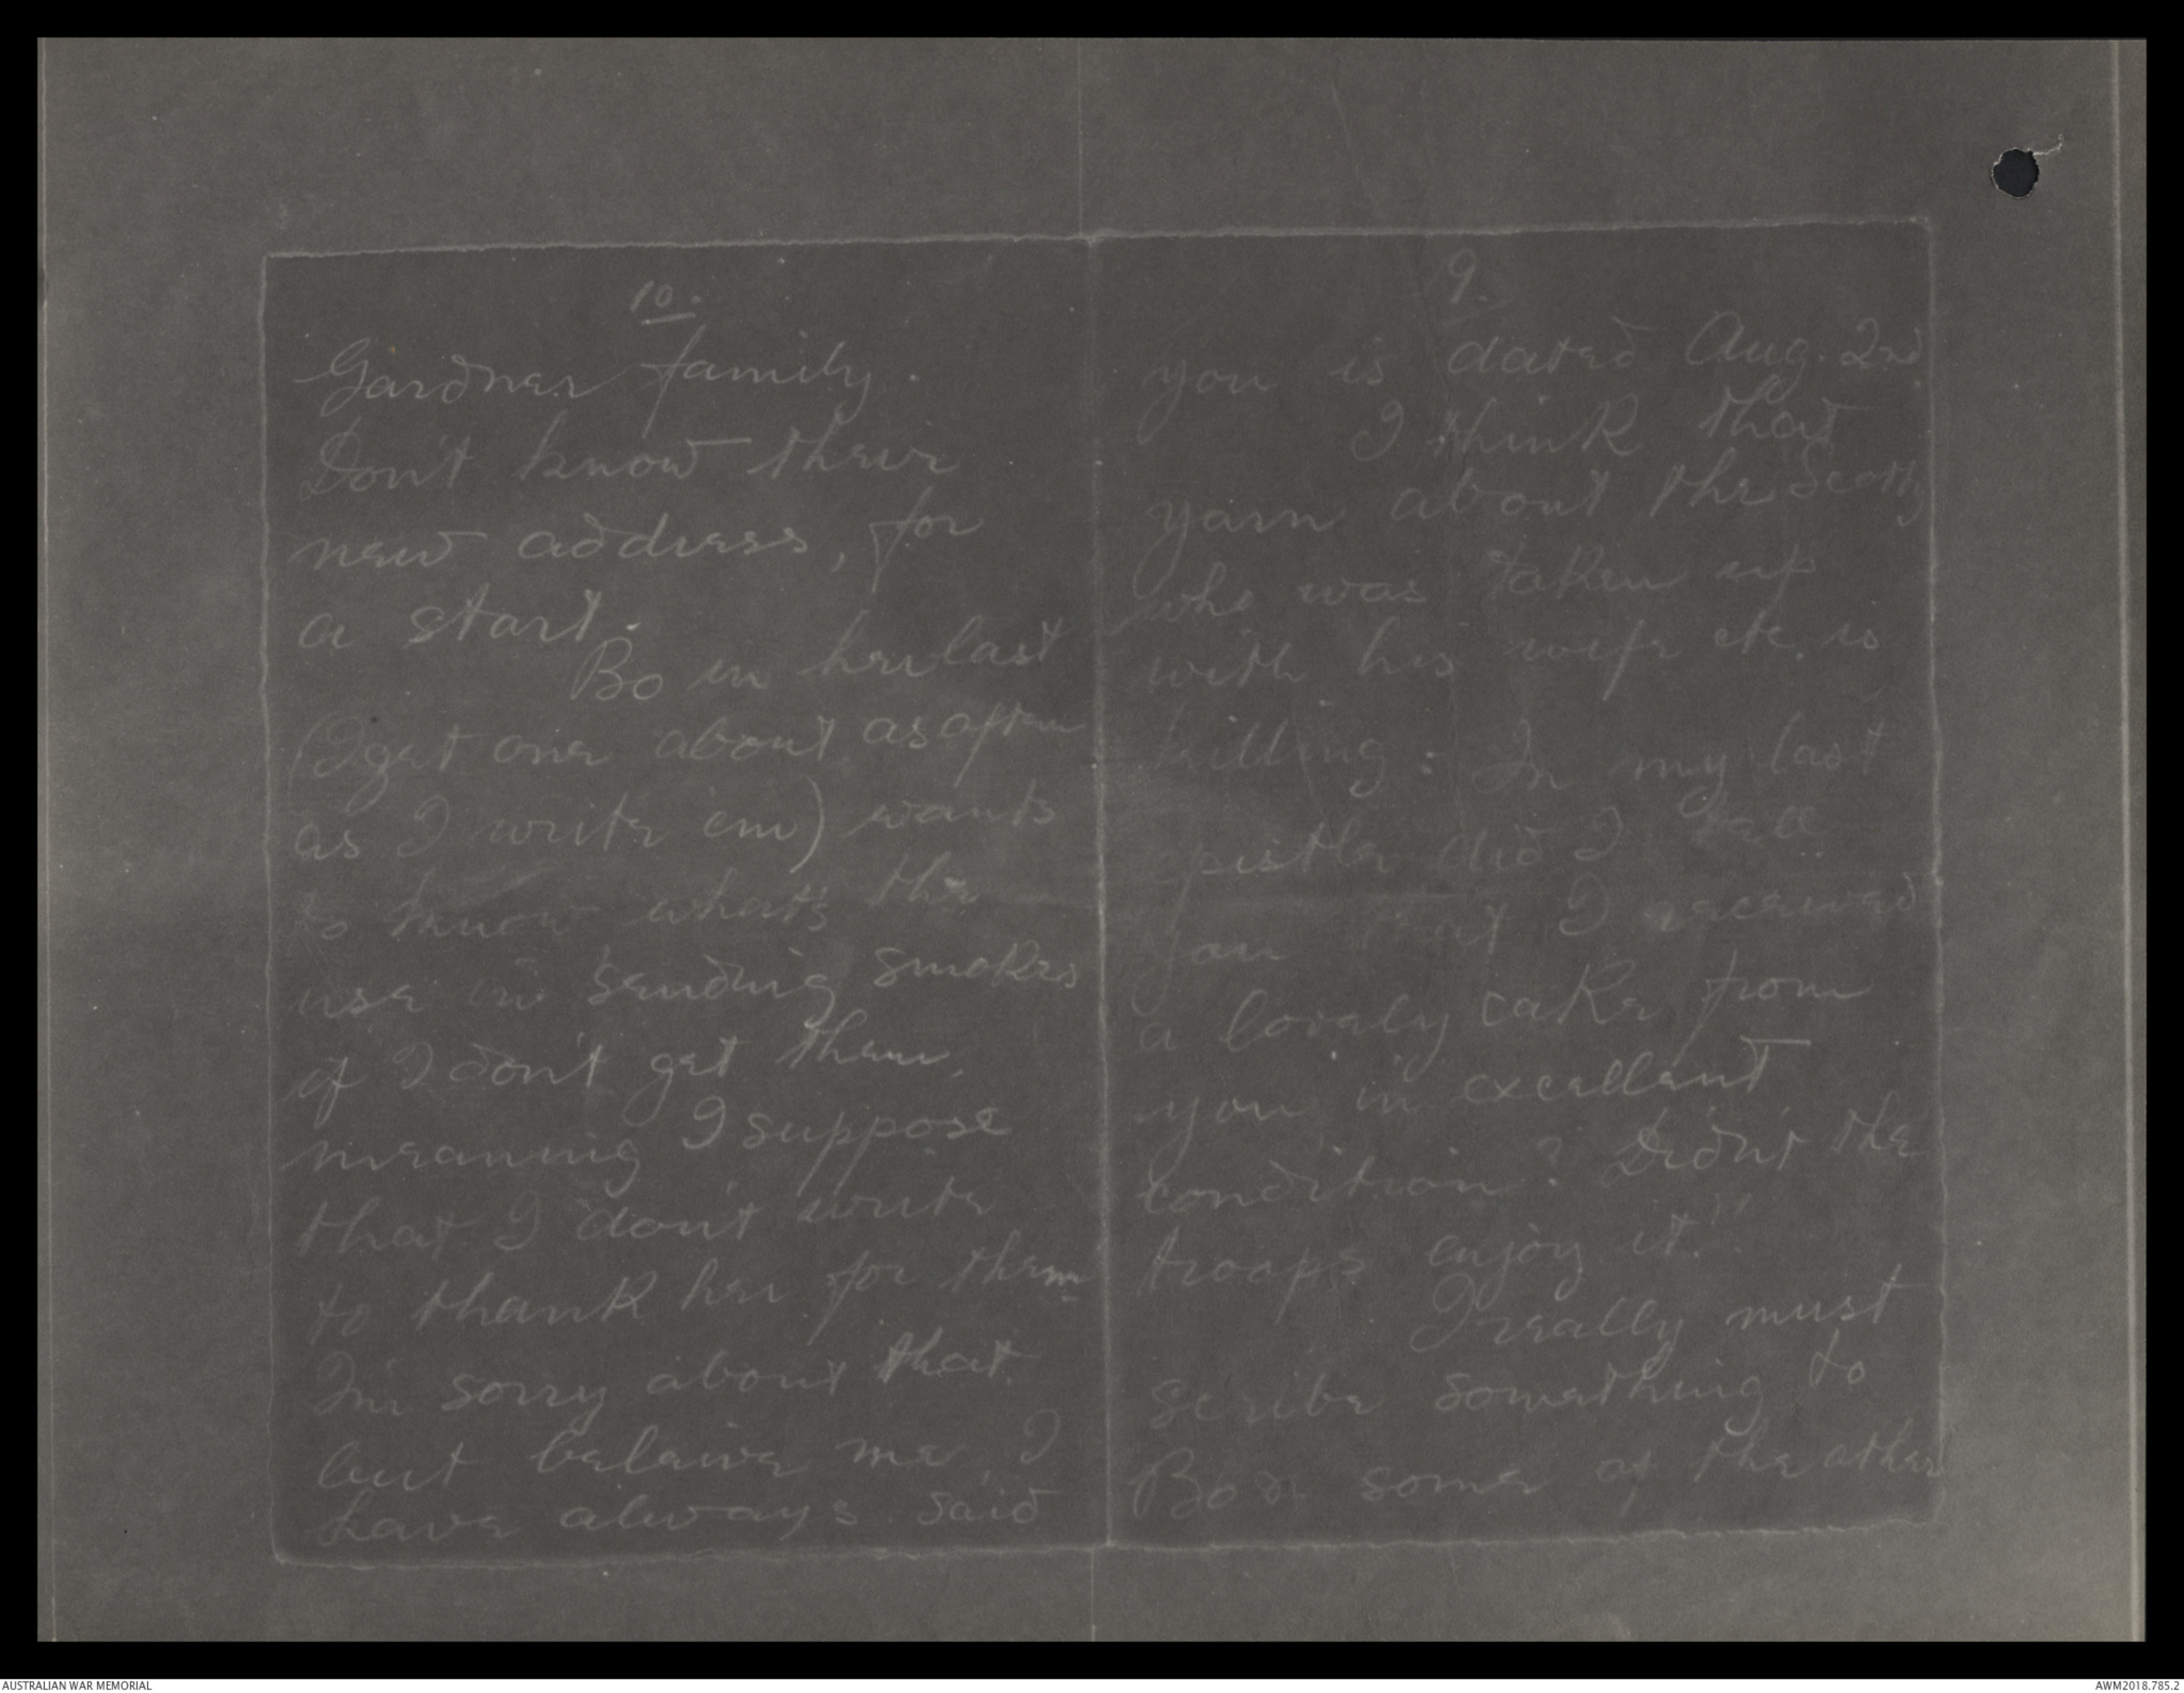 10.
Gardner family.
Don't know their
new address, for
a start.
Bo in her last
(I get one about as often
as I write 'em) wants
to know what's the
use in sending smokes
if I don't get them,
meaning I suppose
that I don't write
to thank her for them
I'm sorry about that.
but beleive me, I
have always said
9.
you is dated Aug. 2nd.
I think that
yarn about the Scotty
who was taken up
with his wife etc. is
killing. In my last
epistle did I tell
you that I received
a lovely cake from
you in excellent
condition? Didn't the
troops enjoy it!!
I really must
scribe something to
Bo & some of the other
AUSTRALIAN WAR MEMORIAL
AWM2018.785.2